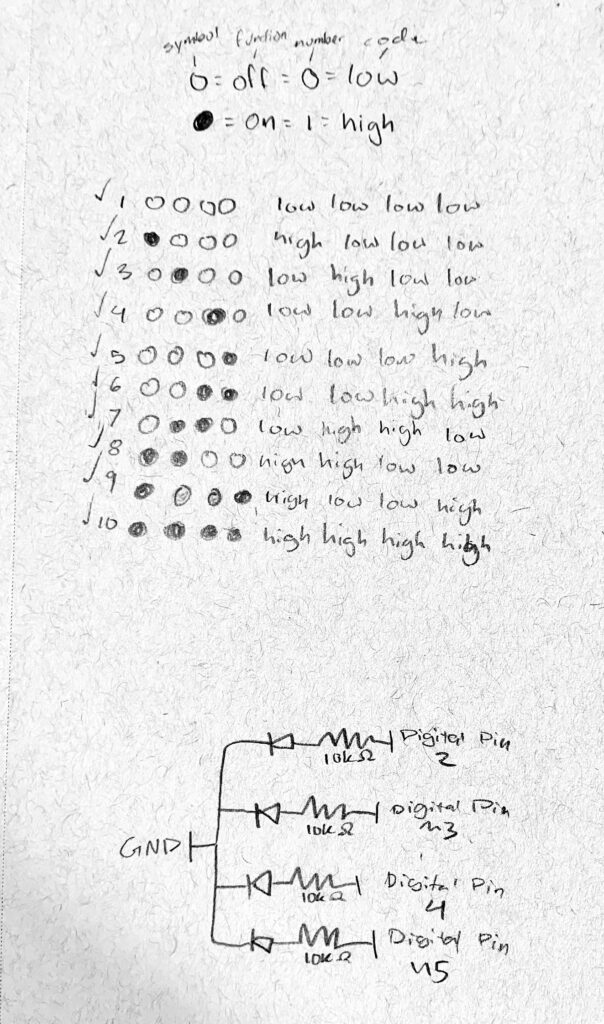 symbol function number code
0 = off = 0 = low
● = on = 1 = high
✓ 1 ○ ○ ○ ○ low low low low
✓ 2 ● ○ ○ ○ high low low low
✓ 3 ○ ● ○ ○ low high low low
✓ 4 ○ ○ ● ○ low low high low
✓ 5 ○ ○ ○ ● low low low high
✓ 6 ○ ○ ● ● low low high high
✓ 7 ○ ● ● ○ low high high low
✓ 8 ● ● ○ ○ high high low low
✓ 9 ● ○ ○ ● high low low high
✓ 10 ● ● ● ● high high high high
10kΩ Digital Pin
2
10kΩ Digital Pin
~3
GND
10kΩ Digital Pin
4
10kΩ Digital Pin
~5